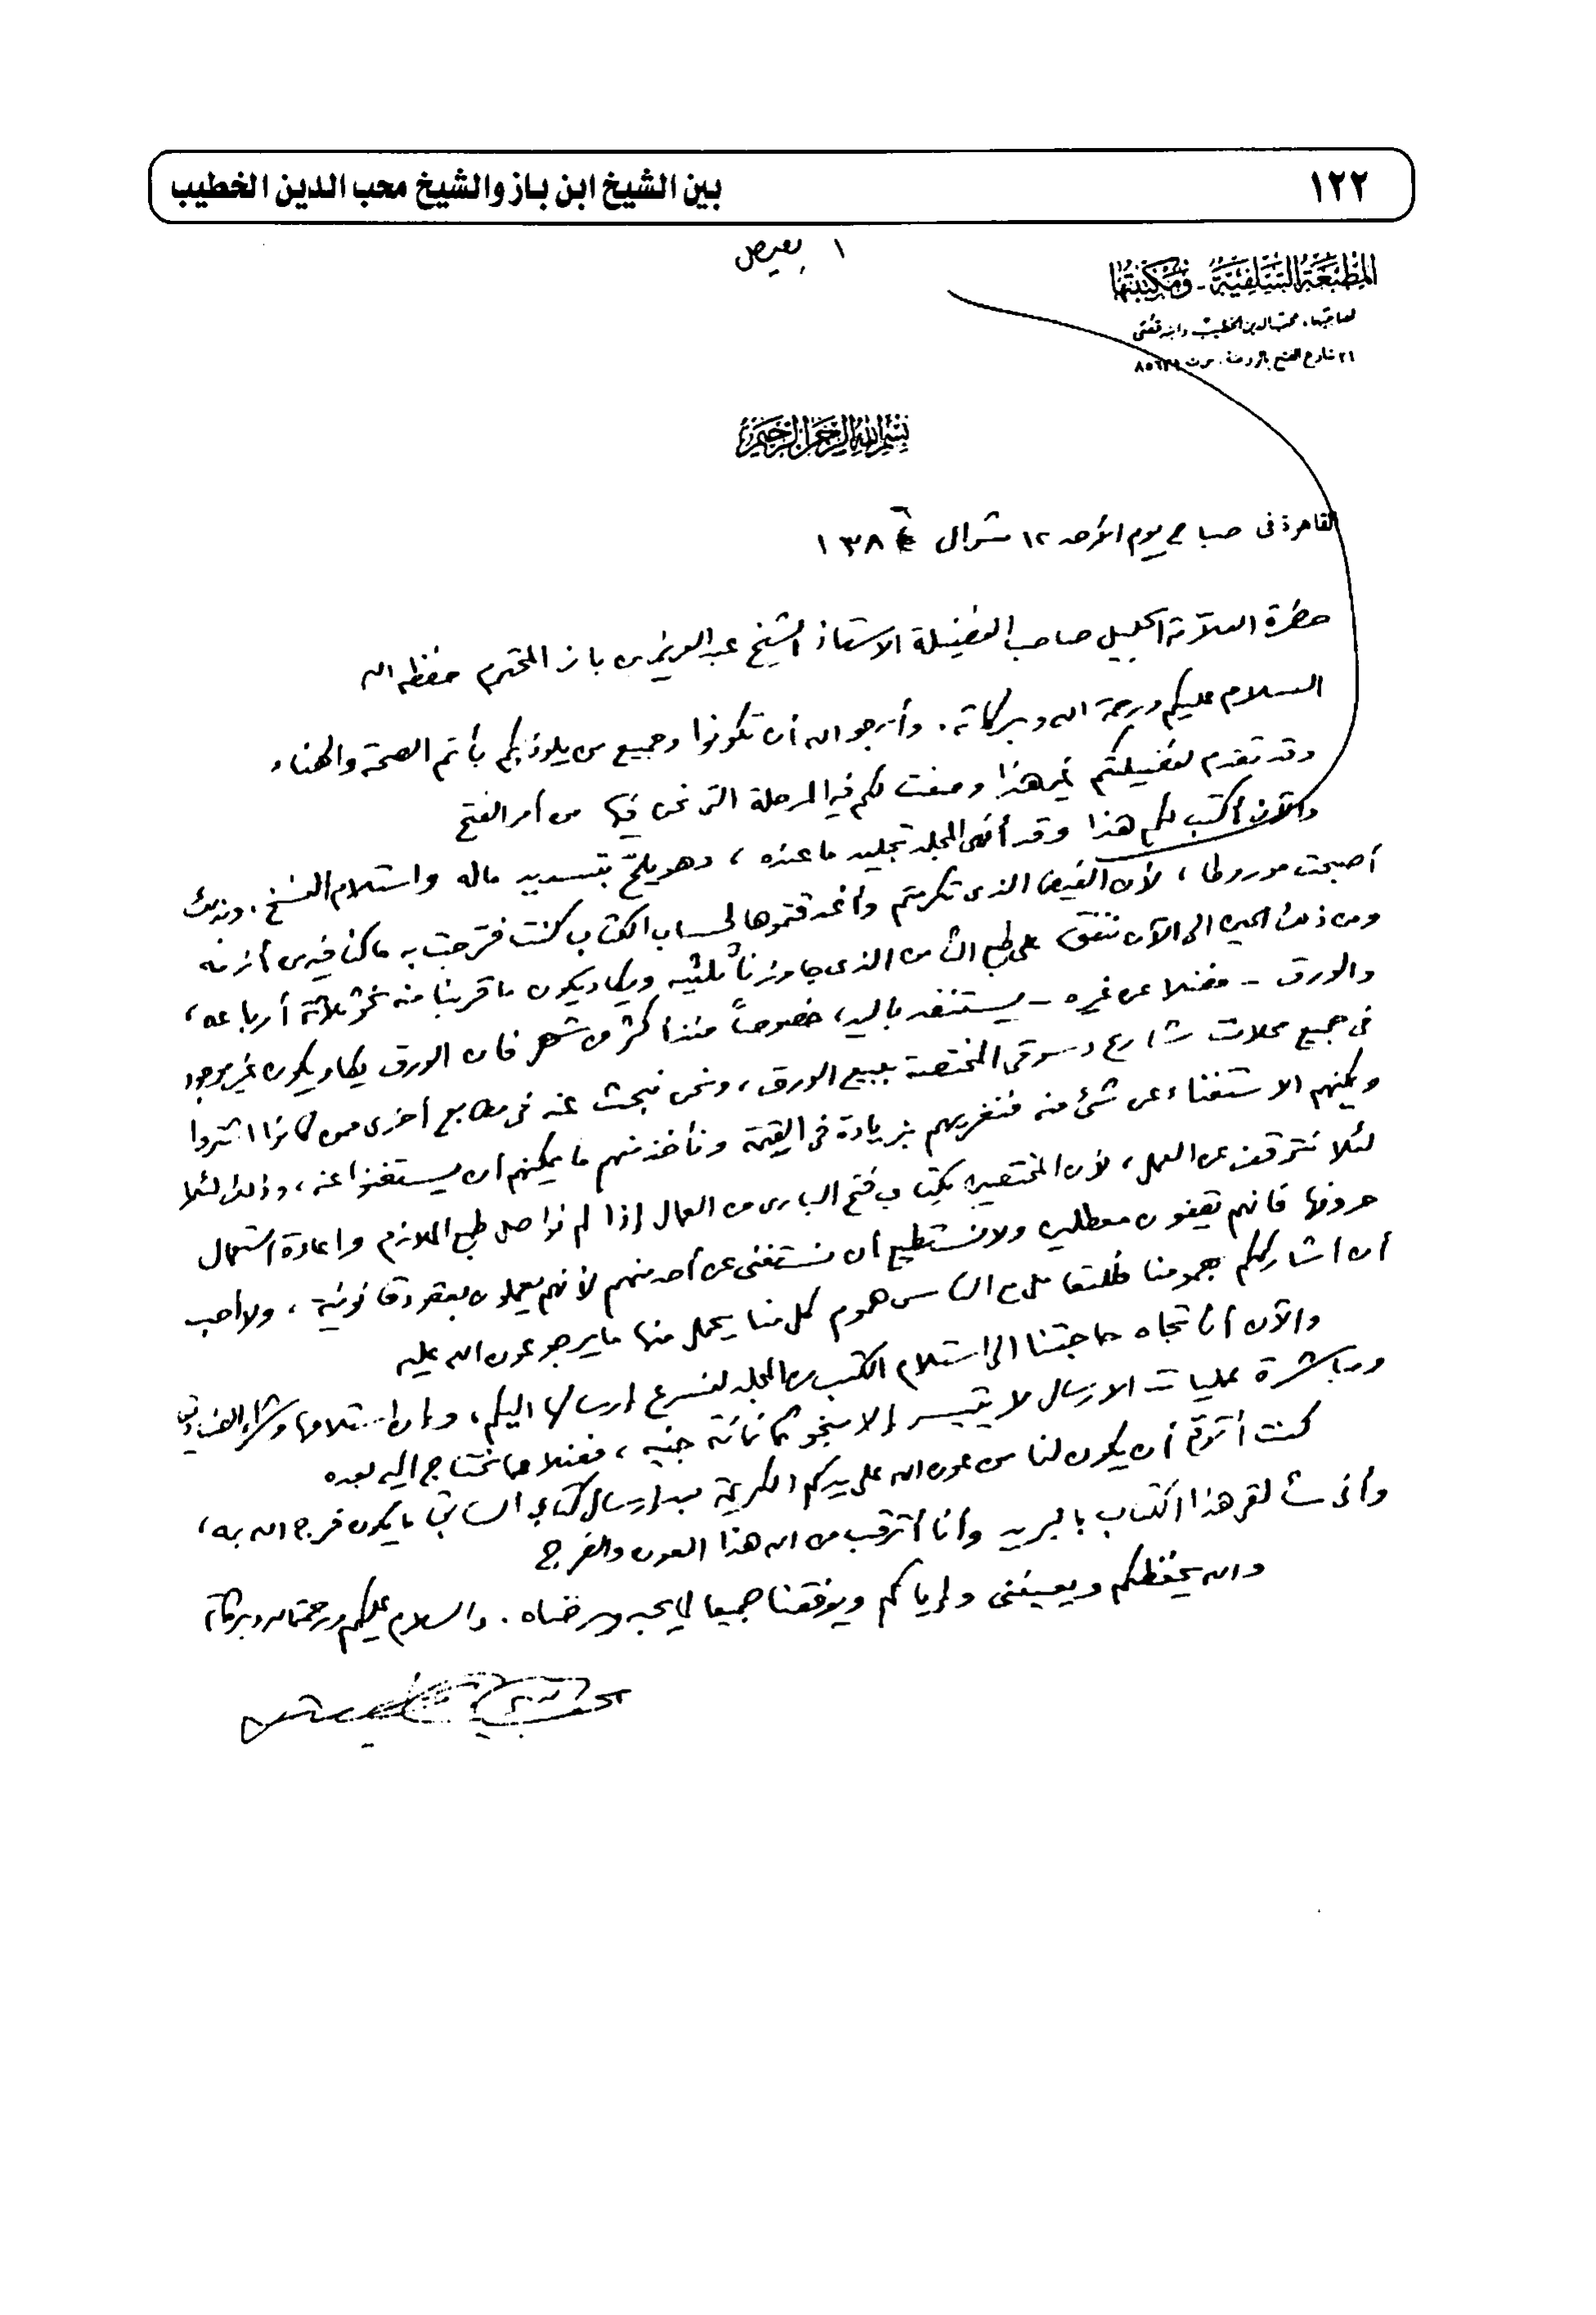 ١٢٢
بين الشيخ ابن باز والشيخ محب الدين الخطيب
١
المطبعة السلفية - ومكتبتها
لصاحبها: محب الدين الخطيب
٢١ شارع الفتح بالروضة
بسم الله الرحمن الرحيم
القاهرة فى صباح يوم الأحد ١٢ شوال ١٣٨٦
حضرة العلامة الجليل صاحب الفضيلة الاستاذ الشيخ عبد العزيز بن باز المحترم حفظه الله
السلام عليكم ورحمة الله وبركاته. وأرجو الله أن تكونوا وجميع من يلوذ بكم بأتم الصحة والهناء
وقد تقدم لفضيلتكم غير هذا وصفت لكم فيه المرحلة التى نحن فيها من أمر الفتح
والآن أكتب لكم هذا وقد أنهى المجلد تجليد ما عنده، وهو يلحّ بتسديد ماله واستلام النسخ. وبذلك
أصبحت موروطا، لأن الفيض الذى تكرمتم وأغدقتموها لحساب الكتاب كنت فرجت به ما كنا فيه من أزمة
ومن ذلك الحين الى الآن ننفق على طبع الثامن الذى جاوزنا ثلثيه ويكاد يكون ما قربنا منه نحو ثلاثة أرباعه،
والورق - فضلا عن غيره - يستنفد باليد، خصوصاً منذ أكثر من شهر فان الورق يكاد يكون غير موجود
فى جميع محلات شارع دسوقى المختصة ببيع الورق، ونحن نبحث عنه فى مطابع أخرى ممن كانوا اشتروا
ويمكنهم الاستغناء عن شئ منه فنغريهم بزيادة فى القيمة ونأخذ منهم ما يمكنهم أن يستغنوا عنه، وذلك لئلا
لئلا نتوقف عن العمل، لأن المختصين بكتاب فتح البارى من العمال إذا لم نواصل طبع الملازم واعادة استعمال
حروفها فانهم يقفون معطلين ولا نستطيع أن نستغنى عن أحد منهم لأنهم يعملون بعقود قانونية، ولا أحب
أن أشارككم همومنا من الناس هموم كل منا يحمل منها ما يرجو عون الله عليه
والآن أنا تجاه حاجتنا الى استلام الكتب من المجلد لنسرع إرسالها اليكم، وإن استلامها وشراء الصناديق
ومباشرة عمليات الارسال لا يتيسر إلا بنحو ثمانمائة جنيه، فضلا عما نحتاج اليه بعده
كنت أتوقع أن يكون لنا من عون الله على يدكم الكريمة بعد ارسال كتابى السابق ما يكون فرج الله به،
وأنى هذا الكتاب بالبريد وأنا أترقب من الله هذا العون والفرج
والله يحفظكم ويعيننى وإياكم ويوفقنا جميعا لما يحبه ويرضاه. والسلام عليكم ورحمة الله وبركاته